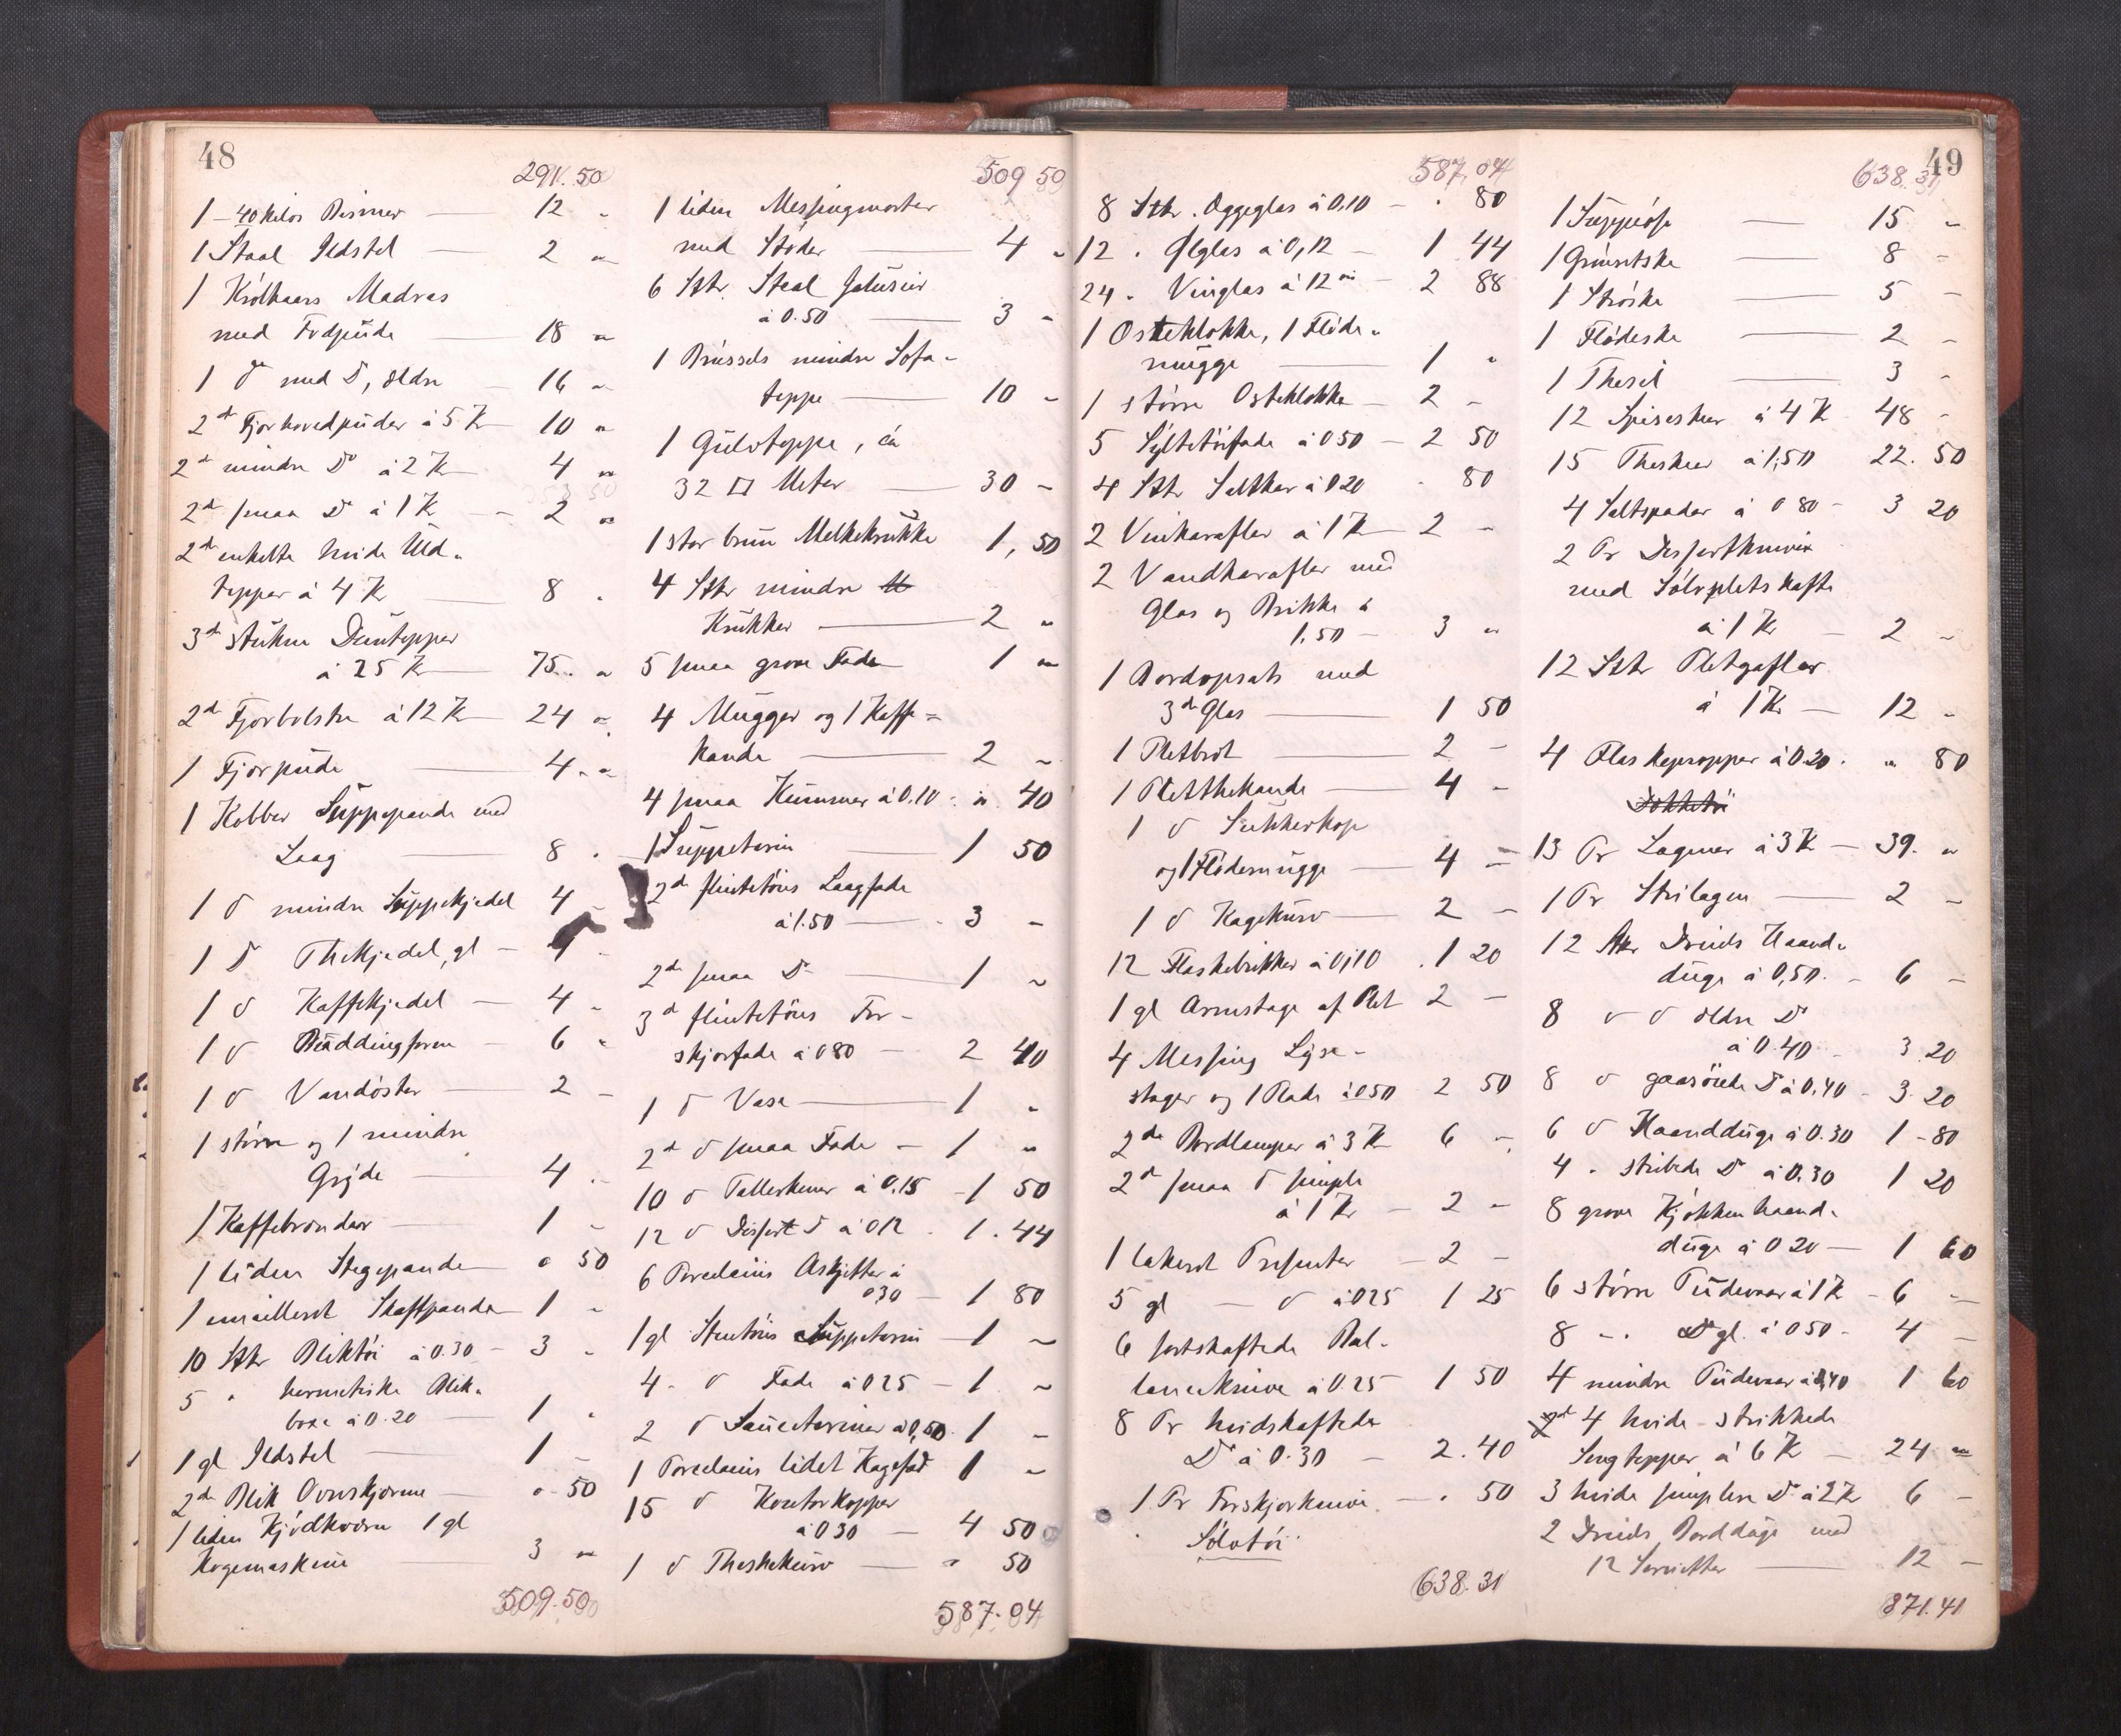 48
291.50
1 - 40 kilos Bismer — 12 "
1 Staal Ildstel — 2 "
1 Krølhaars Madras
med Fodpude — 18 "
1 do med Do, ældre — 16 "
2de Fjærhovedpuder à 5 Kr 10 "
2de mindre Do à 2 Kr 4 "
2de smaa Do à 1 Kr - 2 "
2de enkelte hvide Uld-
tepper à 4 Kr — 8 "
3de stukne Duntepper
à 25 Kr — 75. "
2de Fjærbolstre à 12 Kr — 24 "
1 Fjærpude — 4. "
1 Kobber Suppepande med
Laag — 8 "
1 do mindre Suppekjedel 4 -
1 Do Thekjedel, gl - 4 -
1 do Kaffekjedel — 4 -
1 do Buddingform - 6 "
1 do Vandøster — 2 -
1 større og 1 mindre
Gryde — 4 -
1 Kaffebrænder — 1 -
1 liden Stegepande — " 50
1 emailleret Skaftpande — 1 -
10 Stkr Bliktøi à 0.30 - 3 "
5 " hermetiske Blik-
boxe à 0.20 — 1 "
1 gl Ildstel — 1 -
2de Blik Ovnskjerme — " 50
1 liden Kjødkværn 1 gl
Kogemaskine — 3 "
509.50
509 50
1 liden Messingmorter
med Støder — 4 "
6 Stkr. Staal Jalusier
à 0.50 — 3 "
1 Brussels mindre Sofa-
teppe — 10 "
1 Gulvteppe, ca
32 □ Meter — 30 -
1 stor brun Melkekrukke 1, 50
4 Stkr mindre
Krukker — 2 "
5 smaa grove Fade — 1 "
4 Mugger og 1 Kaffe=
kande — 2 "
4 smaa Kummer à 0.10 - " 40
1 Suppeterin — 1 50
2de flintetøius Laagfade
à 1.50 — 3 -
2de smaa Do — 1 "
3de flintetøius For-
skjærfade à 0 80 — 2 40
1 do Vase — 1 "
2de do smaa Fade — 1 "
10 do Tallerkener à 0,15 - 1 50
12 do Dessert do à 0 12 . 1. 44
6 Porcelains Askjetter à
0,30 — 1 80
1 gl Stentøius Suppeterin — 1 "
4 - do Fade à 0 25 — 1 "
2 do Sauceteriner à 0,50. 1 -
1 Porcelains lidet Kagefad 1 "
15 do Kontorkopper
à 0 30 — 4 50
1 do Theskekurv — " 50
587.04
587,04
8 Stkr. Æggeglas à 0.10 — . 80
12 . Ølglas à 0,12 — 1 44
24 " Vinglas à 12 — 2 88
1 Osteklokke, 1 Fløde-
mugge — 1 "
1 større Osteklokke — 2 -
5 Syltetøifade à 0 50 — 2 50
4 Stkr Saltkar à 0 20 - 80
2 Vinkarafler à 1 Kr — 2 -
2 Vandkarafler med
Glas og Brikke à
1.50 — 3 "
1 Bordopsats med
3de Glas — 1 50
1 Pletbret — 2 -
1 Pletthekande — 4 -
1 do Sukkerkop
og 1 Flødemugge — 4 -
1 do Kagekurv — 2 -
12 Flaskebrikker à 0,10 . 1 20
1 gl Armstage af Plet 2 -
4 Messing Lyse-
stager og 1 Plade à 0 50 2 50
2de Bordlamper à 3 Kr 6 -
2de smaa do simple
à 1 Kr — 2 -
1 lakeret Presenter — 2 -
5 gl — do à 0 25 1 25
6 sortskaftede Bal-
lanceknive à 0.25 1 50
8 Pr hvidskaftede
Do à 0.30 — 2.40
1 Pr Forskjærknive — . 50
Sølvtøi
638.31
49
638.31
1 Suppeøse — 15 "
1 Grøntske — 8 -
1 Strøske — 5 -
1 Flødeske — 2 -
1 Thesil — 3 -
12 Spiseskeer à 4 Kr 48 -
15 Theskeer à 1,50 22. 50
4 Saltspader à 0 80 — 3 20
2 Pr Dessertknive
med Sølvpletskafte
à 1 Kr — 2 -
12 Stkr Pletgafler
à 1 Kr — 12 -
4 Flaskepropper à 0.20. " 80
Dækketøi
13 Pr Lagener à 3 Kr — 39. "
1 Pr Strilagen — 2 -
12 Stkr Dreiels Haand-
duge à 0,50. — 6 -
8 do do ældre Do
à 0.40 — 3.20
8 do gaasøiede Do à 0.40 — 3.20
6 do Haandduge à 0.30 1 - 80
4 " stribede Do à 0.30 1 20
8 grove Kjøkkenhaand-
duge à 0 20 — 1 60
6 større Pudevaar à 1 Kr - 6 -
8 - . Do gl. à 0 50 - 4 -
4 mindre Pudevaar à 0,40 1 60
4 hvide strikkede
Sengtepper à 6 Kr — 24 "
3 hvide simplere Do à 2 Kr 6 -
2 Dreiels Borddüge med
12 Servietter — 12 -
871.41